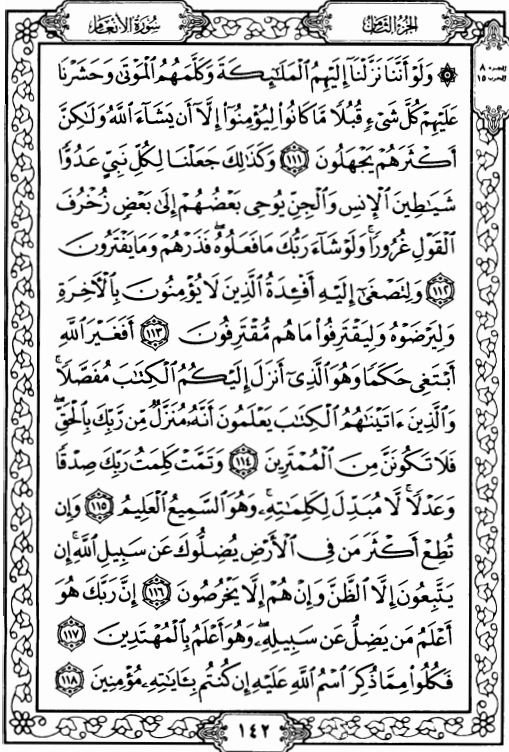 سُورَةُ الأَنْعَامِ
الجُزْءُ الثَّامِنُ
۞ وَلَوْ أَنَّنَا نَزَّلْنَا إِلَيْهِمُ الْمَلَـٰٓئِكَةَ وَكَلَّمَهُمُ الْمَوْتَىٰ وَحَشَرْنَا
عَلَيْهِمْ كُلَّ شَىْءٍ قُبُلًا مَّا كَانُوا۟ لِيُؤْمِنُوٓا۟ إِلَّآ أَن يَشَآءَ اللَّهُ وَلَـٰكِنَّ
أَكْثَرَهُمْ يَجْهَلُونَ ١١١ وَكَذَٰلِكَ جَعَلْنَا لِكُلِّ نَبِىٍّ عَدُوًّا
شَيَـٰطِينَ الْإِنسِ وَالْجِنِّ يُوحِى بَعْضُهُمْ إِلَىٰ بَعْضٍ زُخْرُفَ
الْقَوْلِ غُرُورًا ۚ وَلَوْ شَآءَ رَبُّكَ مَا فَعَلُوهُ ۖ فَذَرْهُمْ وَمَا يَفْتَرُونَ
١١٢ وَلِتَصْغَىٰٓ إِلَيْهِ أَفْـِٔدَةُ الَّذِينَ لَا يُؤْمِنُونَ بِالْـَٔاخِرَةِ
وَلِيَرْضَوْهُ وَلِيَقْتَرِفُوا۟ مَا هُم مُّقْتَرِفُونَ ١١٣ أَفَغَيْرَ اللَّهِ
أَبْتَغِى حَكَمًا وَهُوَ الَّذِىٓ أَنزَلَ إِلَيْكُمُ الْكِتَـٰبَ مُفَصَّلًا ۚ
وَالَّذِينَ ءَاتَيْنَـٰهُمُ الْكِتَـٰبَ يَعْلَمُونَ أَنَّهُۥ مُنَزَّلٌ مِّن رَّبِّكَ بِالْحَقِّ ۖ
فَلَا تَكُونَنَّ مِنَ الْمُمْتَرِينَ ١١٤ وَتَمَّتْ كَلِمَتُ رَبِّكَ صِدْقًا
وَعَدْلًا ۚ لَّا مُبَدِّلَ لِكَلِمَـٰتِهِۦ ۚ وَهُوَ السَّمِيعُ الْعَلِيمُ ١١٥ وَإِن
تُطِعْ أَكْثَرَ مَن فِى الْأَرْضِ يُضِلُّوكَ عَن سَبِيلِ اللَّهِ ۚ إِن
يَتَّبِعُونَ إِلَّا الظَّنَّ وَإِنْ هُمْ إِلَّا يَخْرُصُونَ ١١٦ إِنَّ رَبَّكَ هُوَ
أَعْلَمُ مَن يَضِلُّ عَن سَبِيلِهِۦ ۖ وَهُوَ أَعْلَمُ بِالْمُهْتَدِينَ ١١٧
فَكُلُوا۟ مِمَّا ذُكِرَ اسْمُ اللَّهِ عَلَيْهِ إِن كُنتُم بِـَٔايَـٰتِهِۦ مُؤْمِنِينَ ١١٨
١٤٢